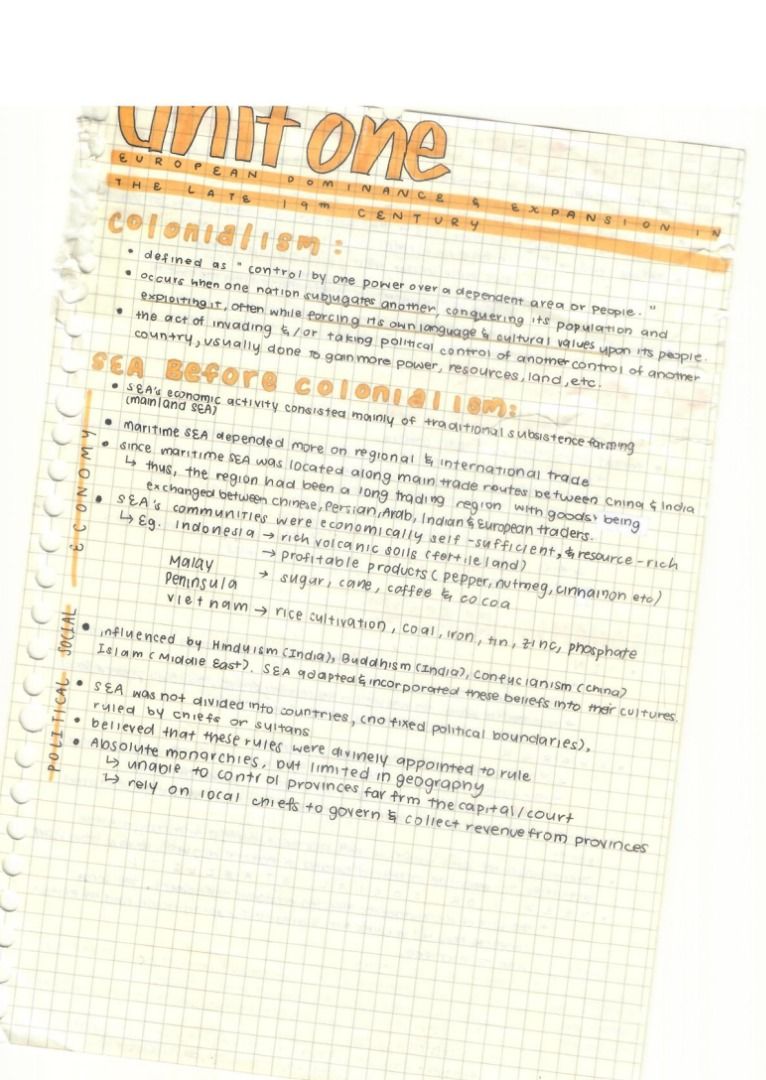 unit one
EUROPEAN DOMINANCE & EXPANSION IN
THE LATE 19TH CENTURY
colonialism:
• defined as "control by one power over a dependent area or people."
• occurs when one nation subjugates another, conquering its population and
exploiting it, often while forcing its own language & cultural values upon its people.
• the act of invading &/or taking political control of another control of another
country, usually done to gain more power, resources, land, etc.
SEA Before colonialism:
ECONOMY
• SEA's economic activity consisted mainly of traditional subsistence farming
(mainland SEA)
• maritime SEA depended more on regional & international trade
• since maritime SEA was located along main trade routes between China & India
↳ thus, the region had been a long trading region with goods being
exchanged between Chinese, Persian, Arab, Indian & European traders.
• SEA's communities were economically self-sufficient, & resource-rich
↳ Eg. Indonesia → rich volcanic soils (fertile land)
→ profitable products (pepper, nutmeg, cinnamon etc)
Malay
Peninsula → sugar, cane, coffee & cocoa
Vietnam → rice cultivation, coal, iron, tin, zinc, phosphate
SOCIAL
• influenced by Hinduism (India), Buddhism (India), Confucianism (China)
Islam (Middle East). SEA adapted & incorporated these beliefs into their cultures.
POLITICAL
• SEA was not divided into countries, (no fixed political boundaries),
ruled by chiefs or sultans
• believed that these rules were divinely appointed to rule
• Absolute monarchies, but limited in geography
↳ unable to control provinces far frm the capital/court
↳ rely on local chiefs to govern & collect revenue from provinces